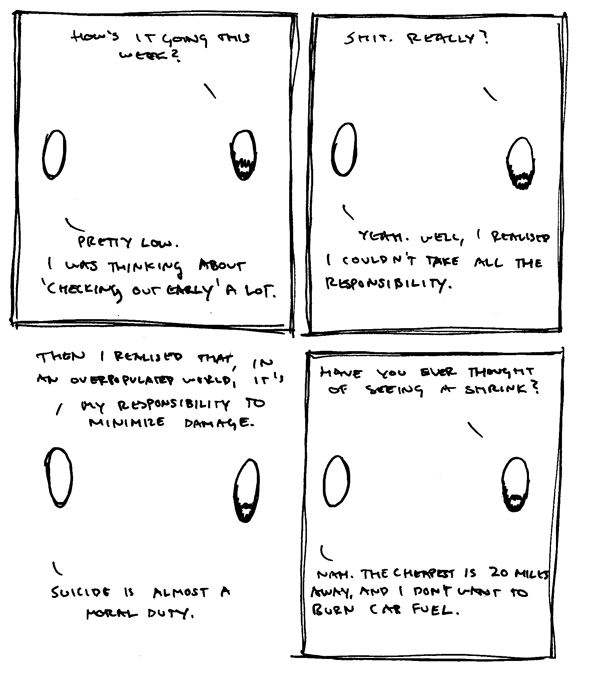 HOW'S IT GOING THIS
WEEK?
PRETTY LOW.
I WAS THINKING ABOUT
'CHECKING OUT EARLY' A LOT.
SHIT. REALLY?
YEAH. WELL, I REALISED
I COULDN'T TAKE ALL THE
RESPONSIBILITY.
THEN I REALISED THAT, IN
AN OVERPOPULATED WORLD, IT'S
MY RESPONSIBILITY TO
MINIMIZE DAMAGE.
SUICIDE IS ALMOST A
MORAL DUTY.
HAVE YOU EVER THOUGHT
OF SEEING A SHRINK?
NAH. THE CHEAPEST IS 20 MILES
AWAY, AND I DON'T WANT TO
BURN CAB FUEL.